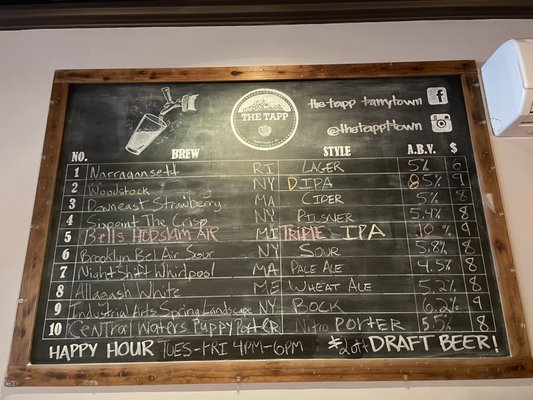 THE TAPP
the tapp tarrytown
@thetappttown
NO. BREW STYLE A.B.V. $
1 Narragansett RI LAGER 5% 6
2 Woodstock NY DIPA 8.5% 9
3 Downeast Strawberry MA CIDER 5% 8
4 Sixpoint The Crisp NY PILSNER 5.4% 8
5 Bells HOPSLAM AIR MI TRIPLE IPA 10% 9
6 Brooklyn Bel Air Sour NY SOUR 5.8% 8
7 Night Shift Whirlpool MA PALE ALE 4.5% 8
8 Allagash White ME WHEAT ALE 5.2% 8
9 Industrial Arts Spring Landscape NY BOCK 6.2% 9
10 Central Waters Puppy Nitro PORTER 5.5% 8
HAPPY HOUR TUES-FRI 4PM-6PM DRAFT BEER!